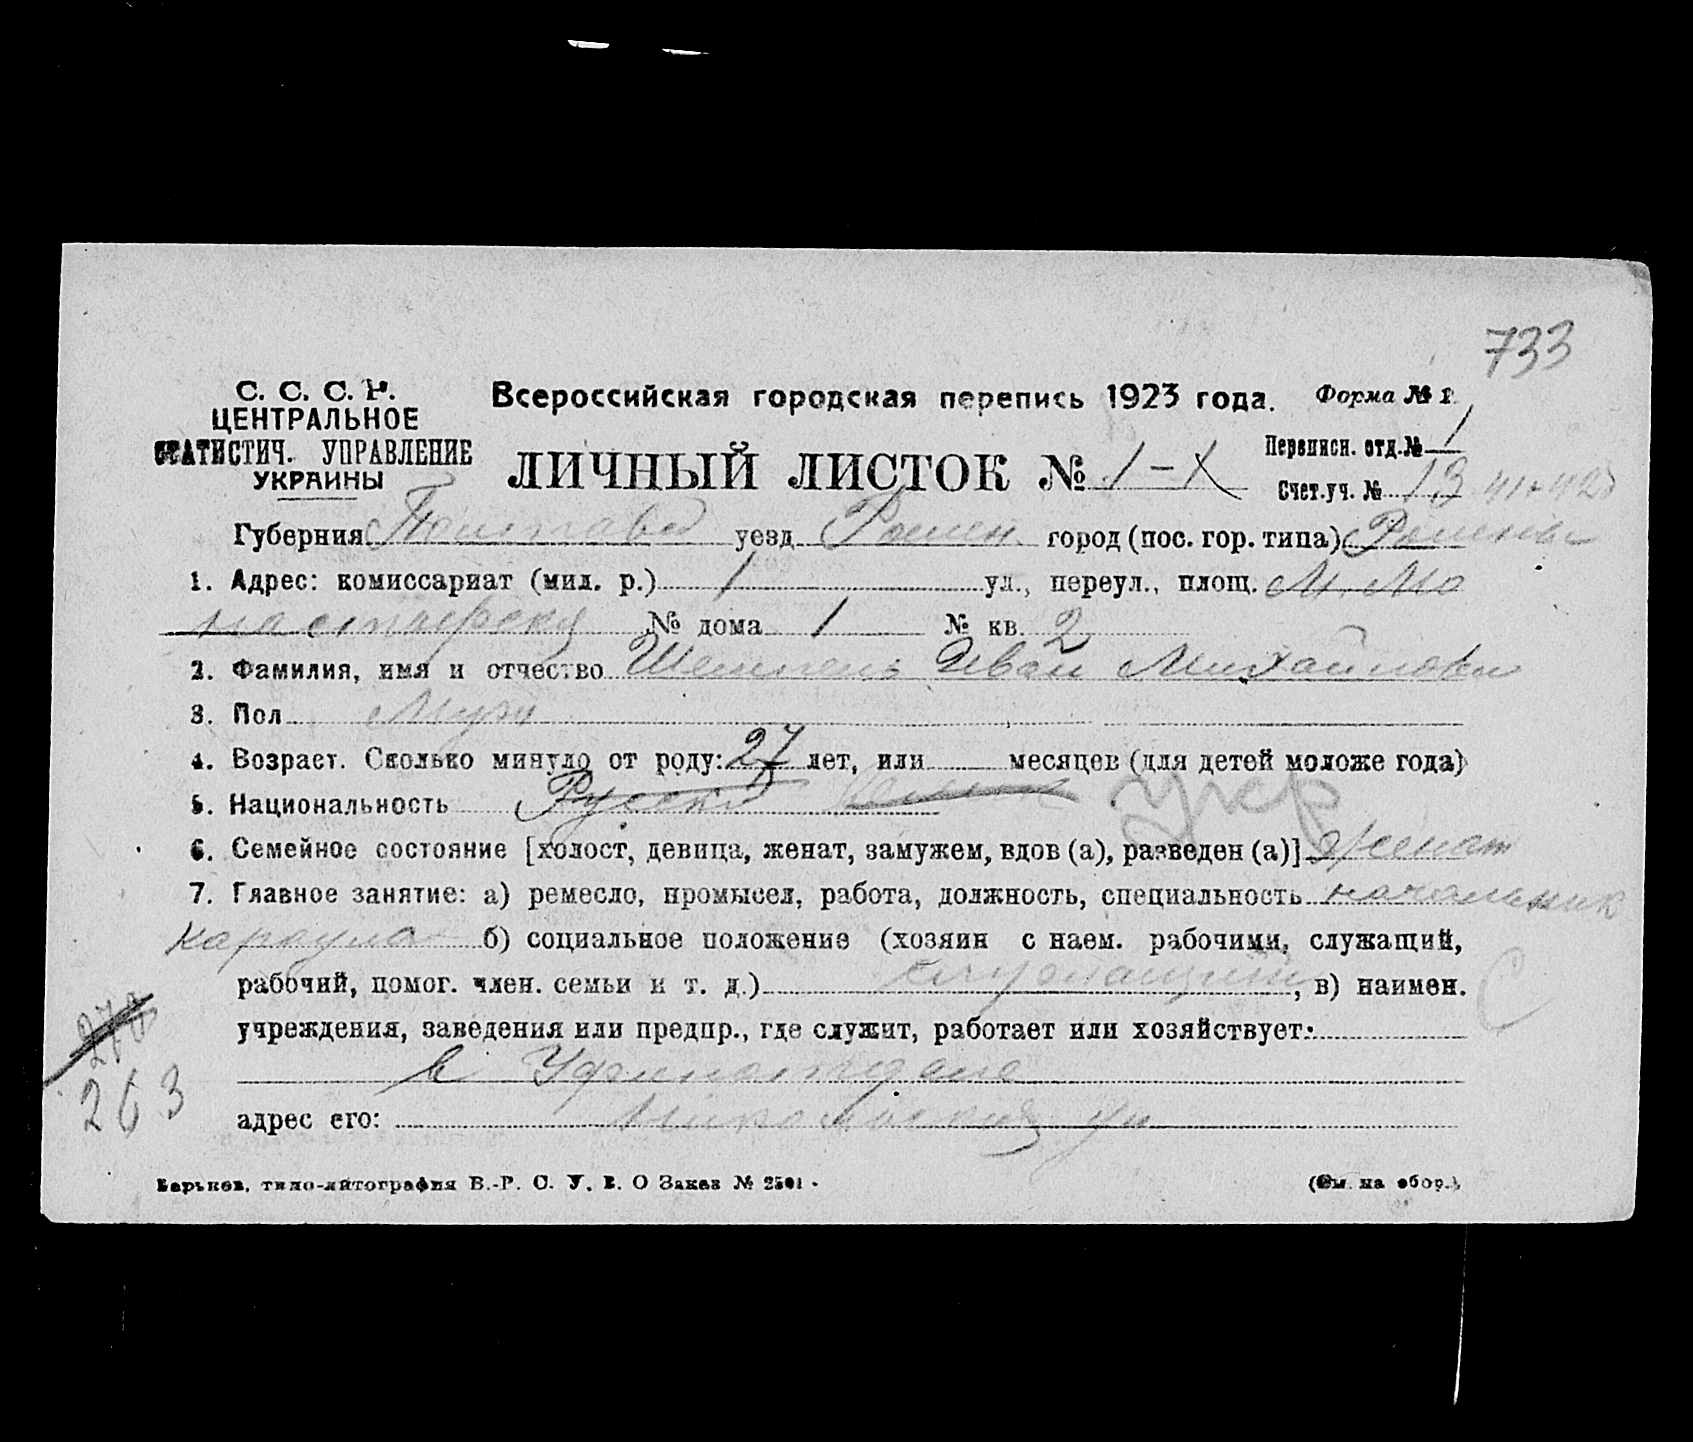 733
С. С. С. Р.
ЦЕНТРАЛЬНОЕ
СТАТИСТИЧ. УПРАВЛЕНИЕ
УКРАИНЫ
Всероссийская городская перепись 1923 года. Форма № 1.
ЛИЧНЫЙ ЛИСТОК № 1-X
Переписн. отд. № 1
Счет. уч. № 13
Губерния Полтавс уезд Ромен. город (пос. гор. типа) Ромены
1. Адрес: комиссариат (мил. р.) 1 ул., переул., площ. М. Мо
настырска № дома 1 № кв. 2
2. Фамилия, имя и отчество Иван Михайлович
3. Пол Муж
4. Возраст. Сколько минуло от роду: 27 лет, или месяцев (для детей моложе года)
5. Национальность Русский укр
6. Семейное состояние [холост, девица, женат, замужем, вдов (а), разведен (а)] женат
7. Главное занятие: а) ремесло, промысел, работа, должность, специальность начальник
караула б) социальное положение (хозяин с наем. рабочими, служащий,
рабочий, помог. член. семьи и т. д.) служащий, в) наимен.
С
учреждения, заведения или предпр., где служит, работает или хозяйствует:
в
адрес его: ул
270
263
Харьков, типо-литография В.-Р. С. У. В. О Заказ № 2501.
(См. на обор.).